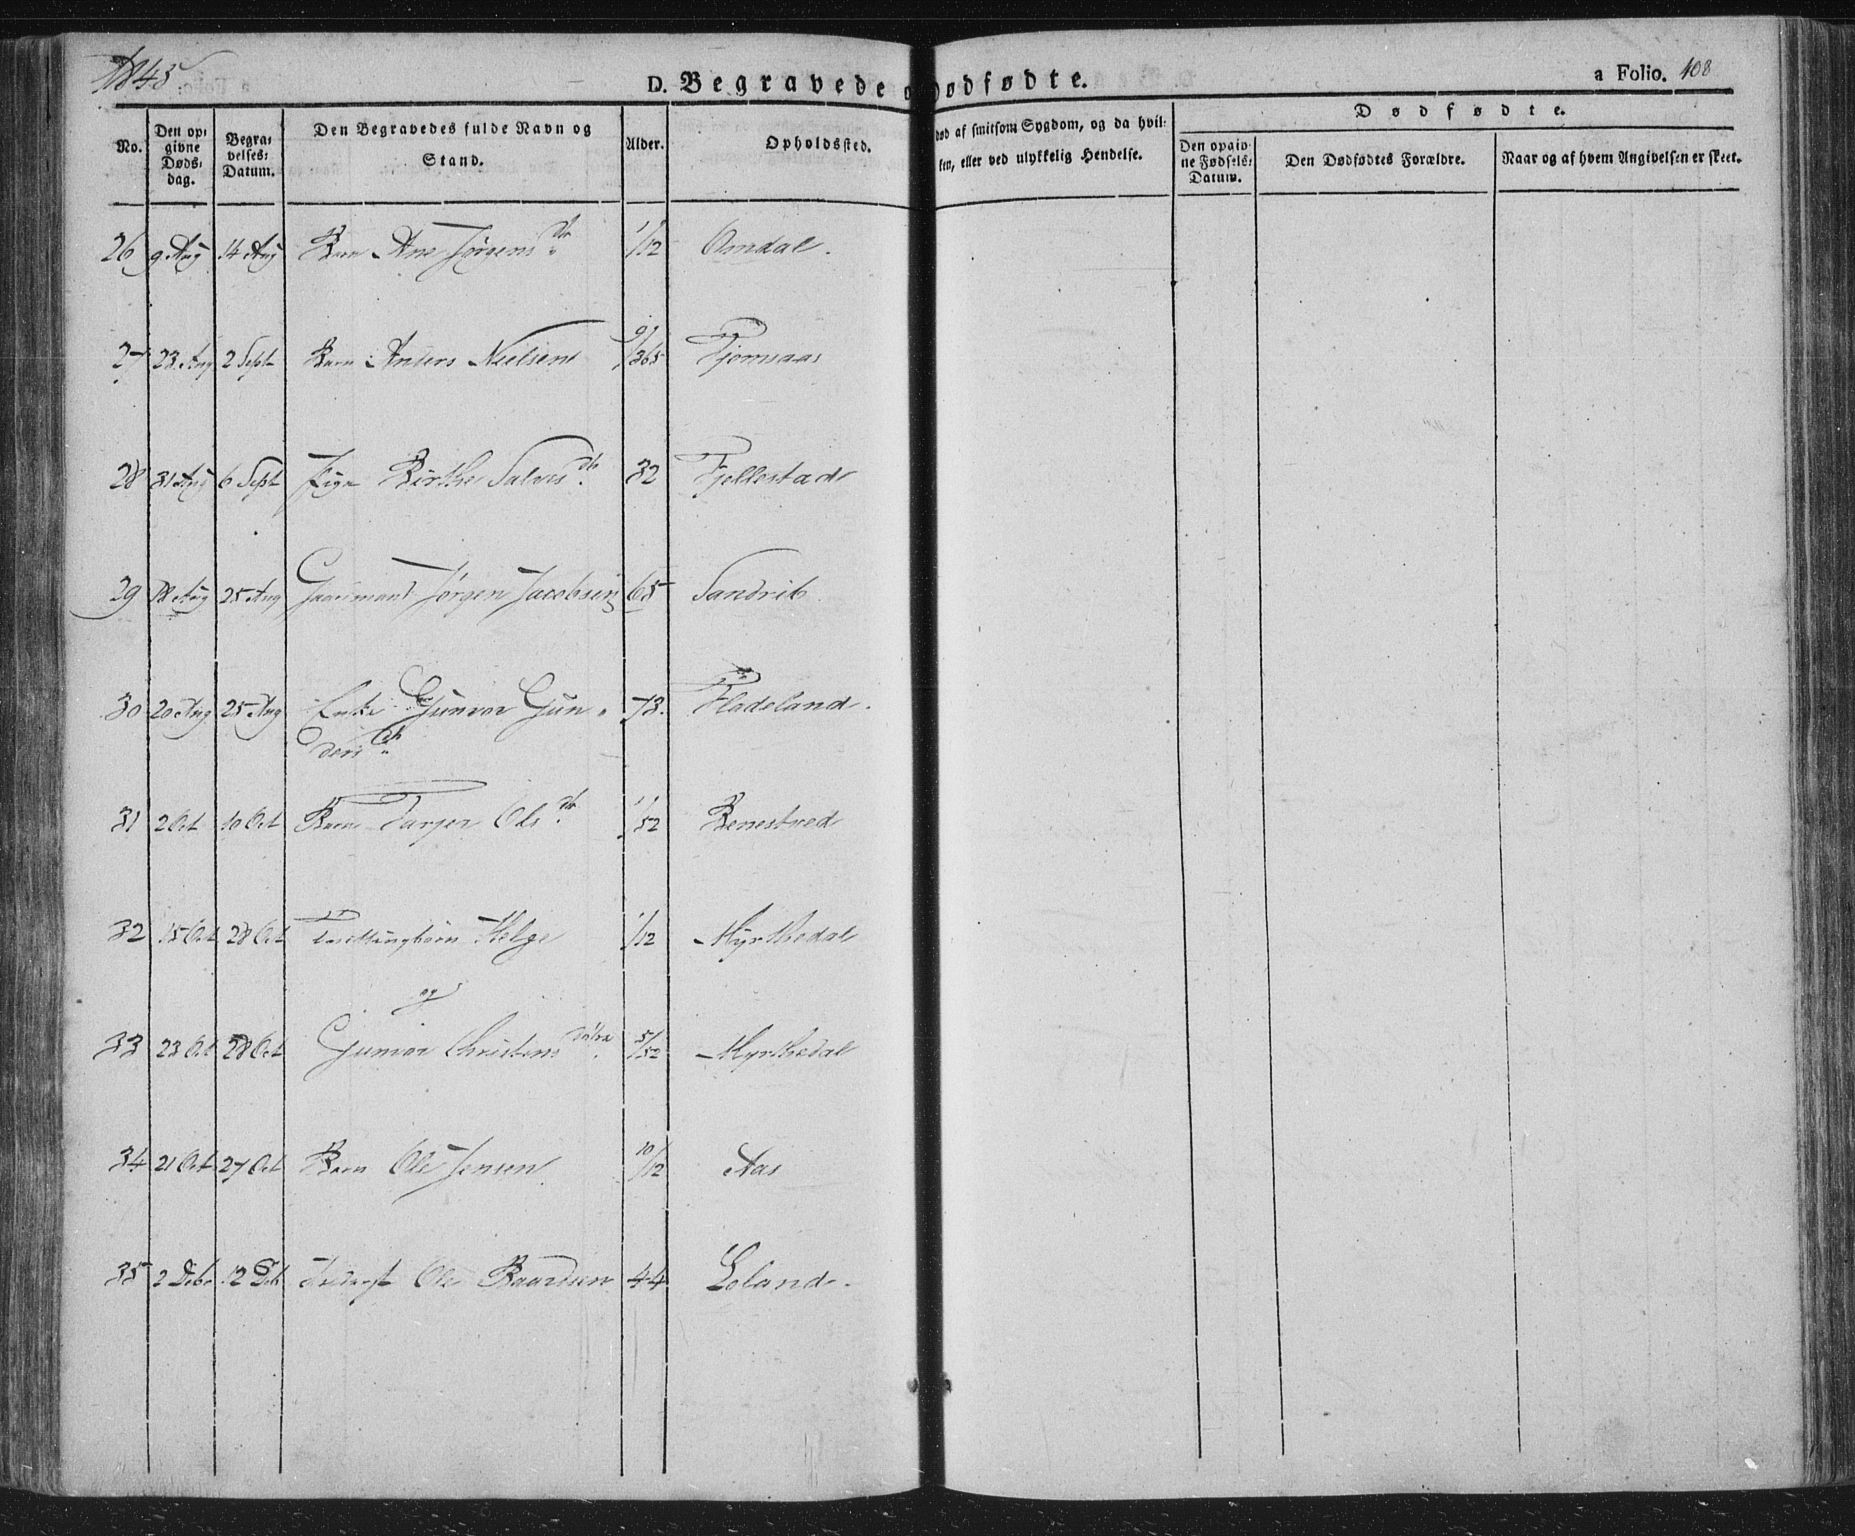 1845
D. Begravede o
Dødfødte.
a Folio. 108
No.
Den op:
givne
Døds:
dag.
Begra:
velses:
Datum.
Den Begravedes fulde Navn og
Stand.
Alder.
Opholdssted.
død af smitsom Sygdom, og da hvil:
ken, eller ved ulykkelig Hendelse.
Dødfødte.
Den opgiv:
ne Fødsels:
Datum.
Den Dødfødtes Forældre.
Naar og af hvem Angivelsen er skeet.
26 9 Aug 14 Aug Barn Ane Jørgens dtr 1/12 Omdal.
27 23 Aug 2 Sept Barn Anders Nielsen 9/365 Tjomsaas
28 31 Aug 6 Sept Pige Birthe Salves dtr. 32 Fjellestad
29 Aug 25 Aug Gaardmand Jørgen Jacobsen 65 Sandrib
30 20 Aug 25 Aug Enke Gunvor Gun- 73. Fladeland.
ders dtr
31 2 Oct 10 Oct Barn Tarjer Ols dtr. 1/52 Benestved
32 15 Oct 28 Oct Tvillingbørn Helge 1/12 Myrthedal
og
33 23 Oct 28 Oct Gunvor Christens døtre. 5/52 Myrthedal
34 21 Oct 27 Oct Barn Ole Jensen 10/12 Aas
35 2 Debr 12 Deb Ole Baardsen 44 Loland.